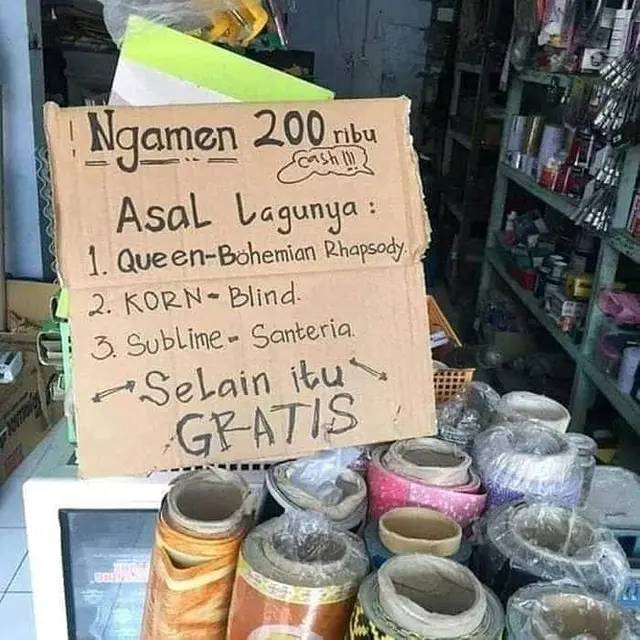 Ngamen 200 ribu
Cash !!!
Asal Lagunya :
1. Queen-Bohemian Rhapsody.
2. KORN - Blind.
3. Sublime - Santeria.
Selain itu
GRATIS